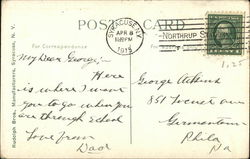 POST CARD
SYRACUSE, N.Y.
APR 8
1915
NORTHRUP
For Correspondence
1.25
My Dear George:-
Here
is where I want
you to go when you
are through school
Love from
Dad
George
851
Germantown
Phila
Pa
Rudolph Bros., Manufacturers, Syracuse, N. Y.